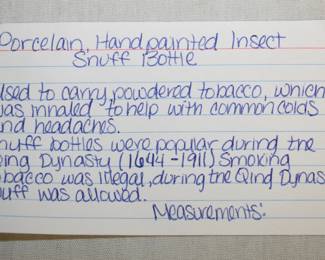 Porcelain, Handpainted Insect
Snuff Bottle
Used to carry powdered tobacco, which
was inhaled to help with common colds
and headaches.
Snuff bottles were popular during the
Qing Dynasty (1644-1911) Smoking
tobacco was illegal, during the Qing Dynas
snuff was allowed.
Measurements: